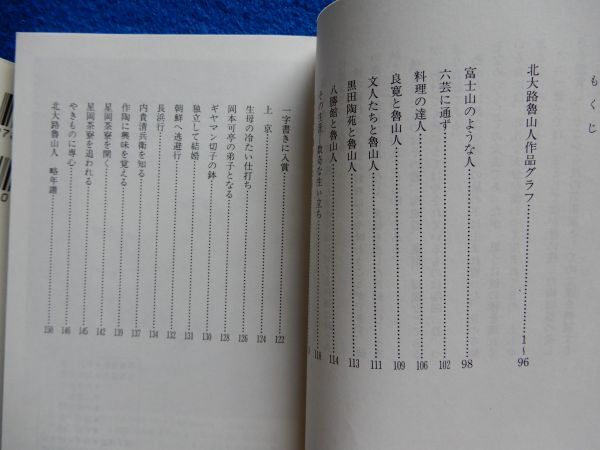 もくじ
北大路魯山人作品グラフ……………1〜96
富士山のような人……………98
六芸に通ず……………102
料理の達人……………106
良寛と魯山人……………109
文人たちと魯山人……………111
黒田陶苑と魯山人……………113
八勝館と魯山人……………114
その生涯 数奇な生い立ち……………118
一字書きに入賞……………122
上 京……………124
生母の冷たい仕打ち……………126
岡本可亭の弟子となる……………128
ギヤマン切子の鉢……………130
独立して結婚……………131
朝鮮へ逃避行……………132
長浜行……………134
内貴清兵衛を知る……………137
作陶に興味を覚える……………139
星岡茶寮を開く……………142
星岡茶寮を追われる……………145
やきものに専心……………146
北大路魯山人 略年譜……………150